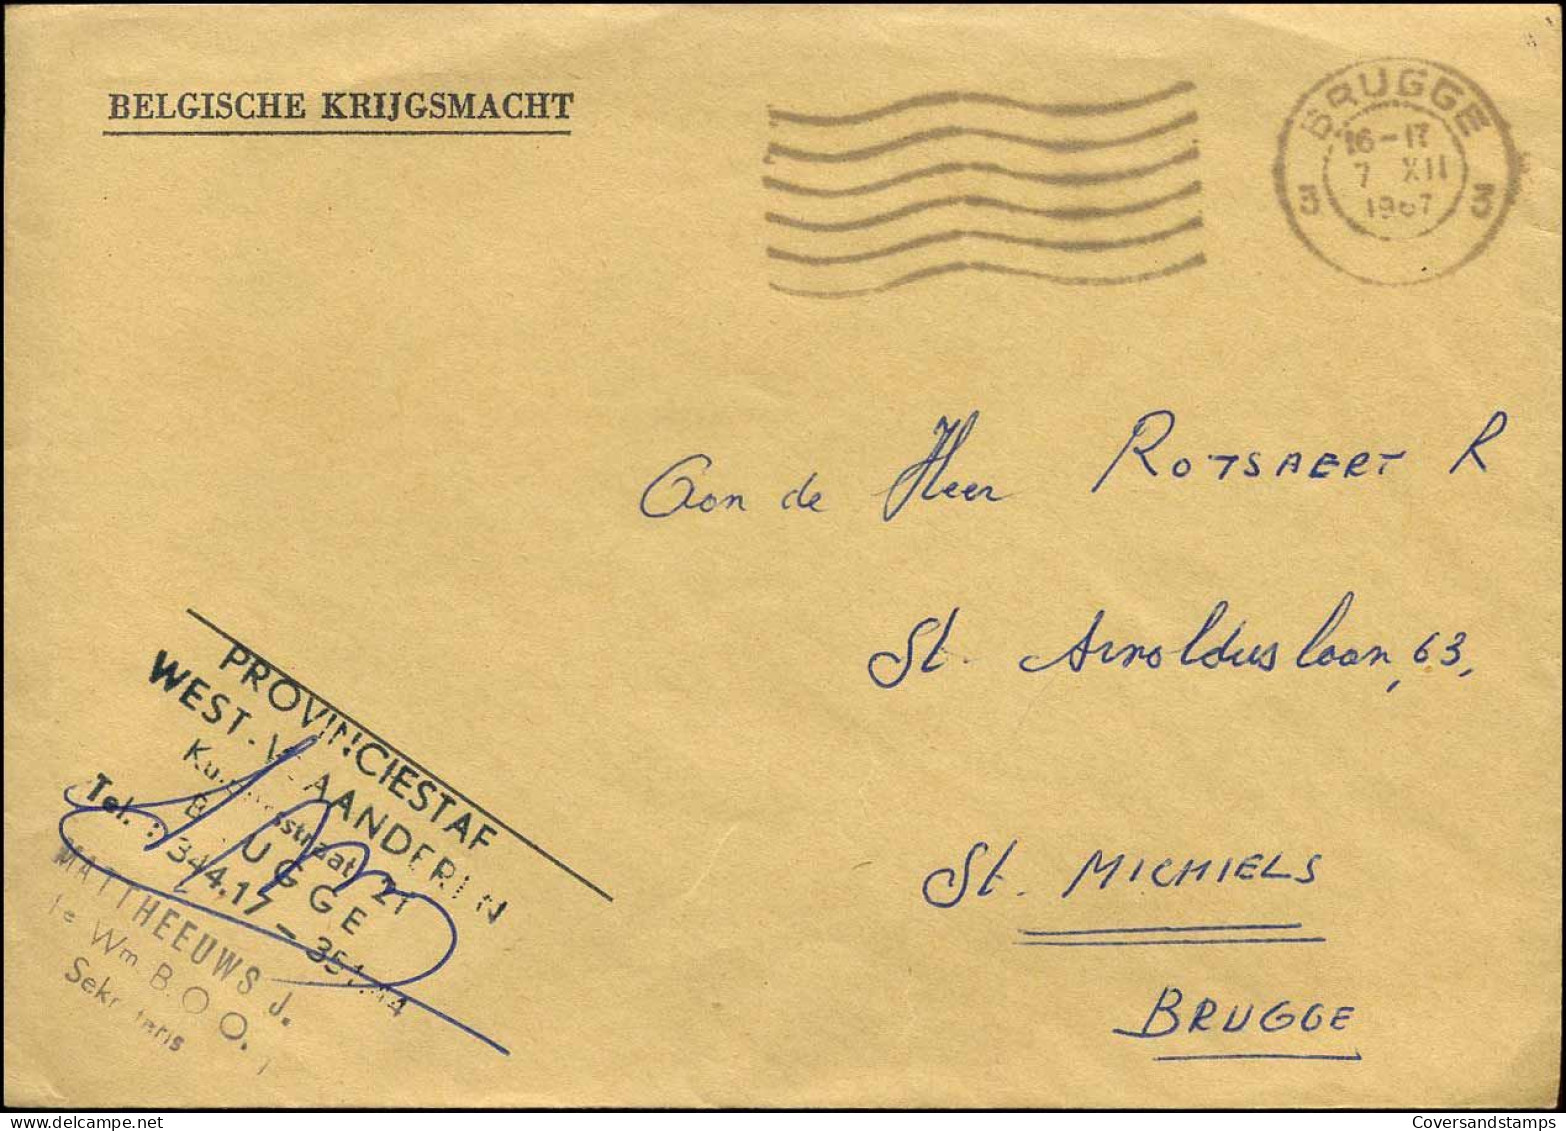 BELGISCHE KRIJGSMACHT
BRUGGE
16-17
7 XII
1967
3 3
Aan de Heer ROTSAERT R
St. Arnolduslaan, 63,
St. MICHIELS
BRUGGE
PROVINCIESTAF
WEST-VLAANDEREN
21
BRUGGE
Tel. : 344.17 -
MATTHEEUWS J.
1e Wm B.O.O.
Sekretaris
CoversandStamps